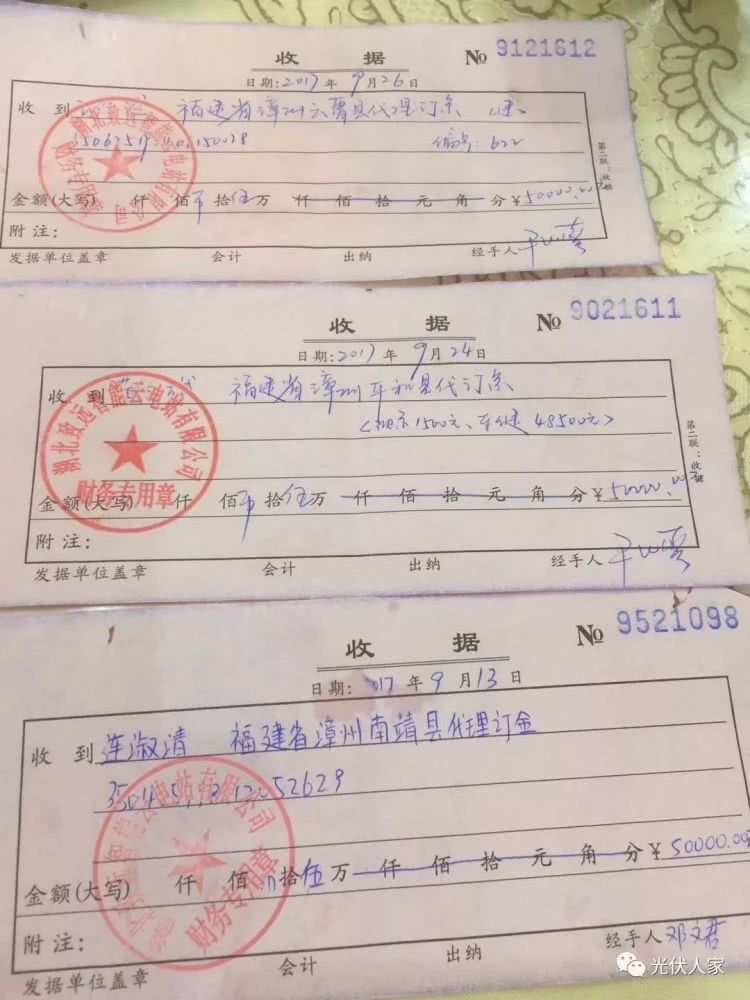 收 据 № 9121612
日期:2017年9月26日
收 到 福建省漳州云霄县代理订金
编号:622
金额(大写) 仟 佰 拾伍万 仟 佰 拾 元 角 分 ¥50000.00
附 注:
发据单位盖章 会计 出纳 经手人
第二联:收据
湖北致远智能云电站有限公司
财务专用章
收 据 № 9021611
日期:2017年9月24日
收 到 福建省漳州平和县代订金
1500元、 48500元
金额(大写) 仟 佰 拾伍万 仟 佰 拾 元 角 分 ¥50000.00
附 注:
发据单位盖章 会计 出纳 经手人
第二联:收据
湖北致远智能云电站有限公司
财务专用章
收 据 № 9521098
日期: 017年9月13日
收 到 连淑清 福建省漳州南靖县代理订金
金额(大写) 仟 佰 拾伍万 仟 佰 拾 元 角 分 ¥50000.00
附 注:
发据单位盖章 会计 出纳 经手人 邓文君
财务专用章
光伏人家